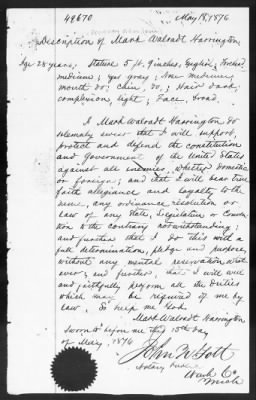 49670 May 18, 1876
Description of Mark Walrodt Harrington
Age 28 years; Stature 5 ft. 9 inches, English; Forehead
medium; Eyes gray; Nose medium;
mouth do; Chin, do,; Hair dark;
complexion, light; Face, broad.
I Mark Walrodt Harrington do
solemnly swear that I will support,
protect and defend the constitution
and Government of the United States
against all enemies, whether domestic
or foreign; and that I will bear true
faith allegiance and loyalty to the
same, any ordinance, resolution or
law of any State, Legislature or Conven-
tion to the contrary notwithstanding;
and further, that I do this with a
full determination, pledge and purpose,
without any mental reservation what-
ever; and further, that I will well
and faithfully perform all the duties
which may be required of me by
law. So help me God.
Mark Walrodt Harrington
Sworn to before me this 15th day
of May, 1876
John N. Gott
Notary Public
Wash Co
Mich